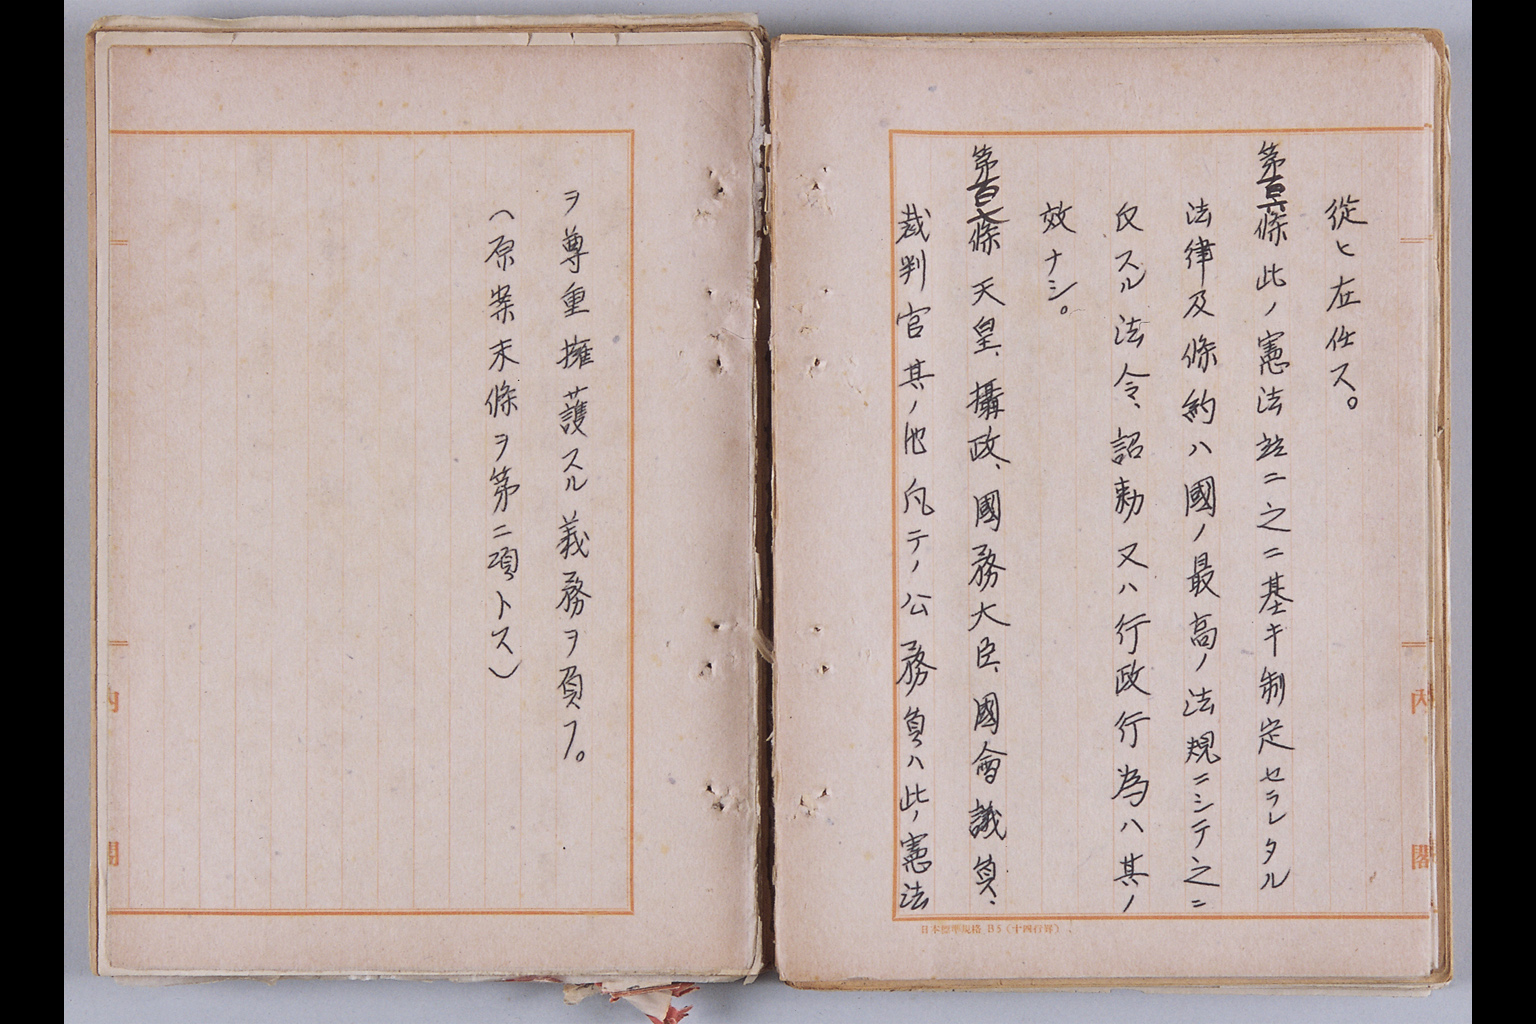 從ヒ在任ス。
第百六條 此ノ憲法竝ニ之ニ基キ制定セラレタル
法律及條約ハ國ノ最高ノ法規ニシテ之ニ
反スル法令、詔勅又ハ行政行為ハ其ノ
效ナシ。
第百七條 天皇、攝政、國務大臣、國會議員、
裁判官其ノ他凡テノ公務員ハ此ノ憲法
内閣
日本標準規格 B5（十四行罫）
ヲ尊重擁護スル義務ヲ負フ。
（原案末條ヲ第二項トス）
内閣